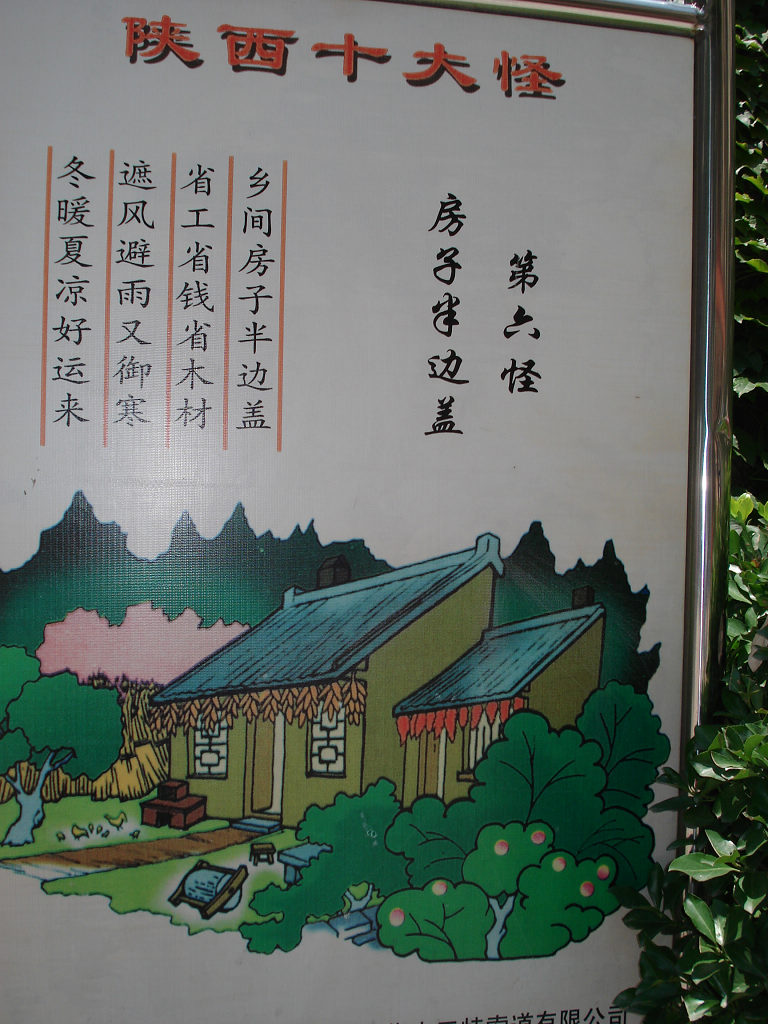 陕西十大怪
第六怪
房子半边盖
乡间房子半边盖
省工省钱省木材
遮风避雨又御寒
冬暖夏凉好运来
索道有限公司